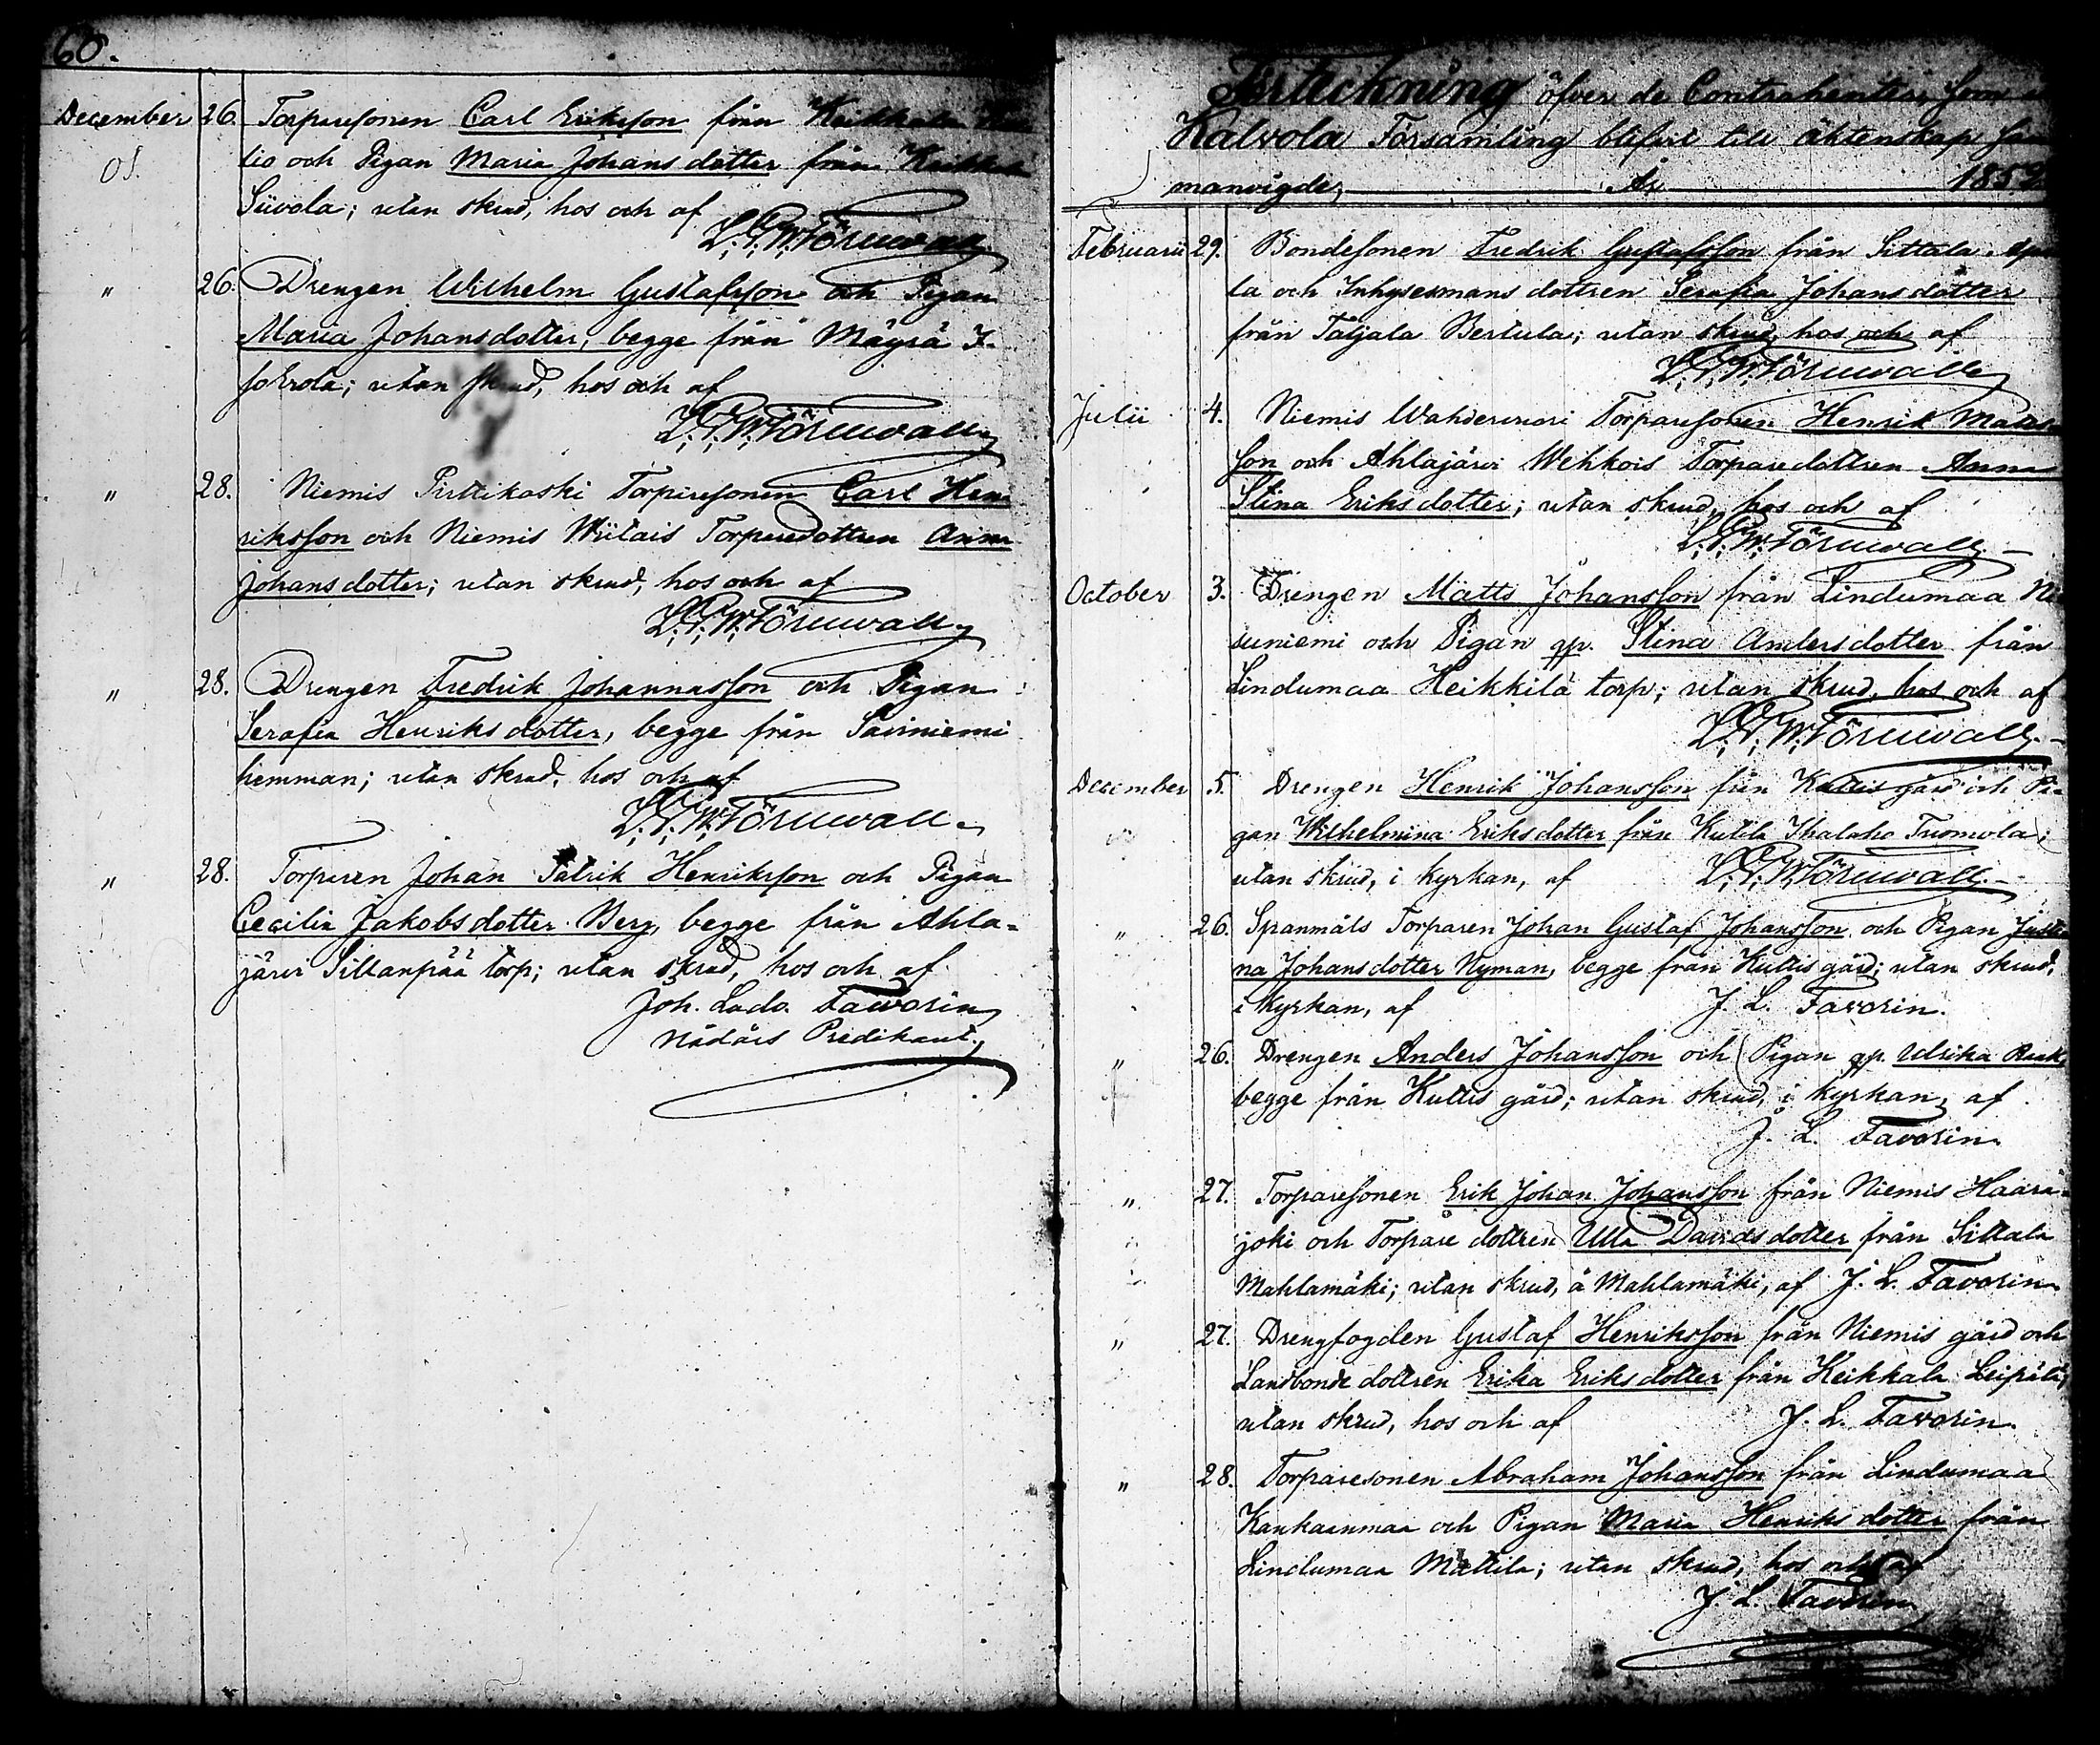 60.
December 26. Torparesonen Carl Eriksson från Keikkala
lio och Pigan Maria Johansdotter från Keikkala
Siivola; utan skrud, hos och af
L. T. W. Törnwall
" 26. Drengen Wilhelm Gustafsson och Pigan
Maria Johansdotter, begge från Mäyrä I-
soErola; utan skrud, hos och af
L. T. W. Törnwall
" 28. Niemis Pirttikoski Torparesonen Carl Hen-
riksson och Niemis Wiitais Torparedottren Anna
Johansdotter; utan skrud, hos och af
L. T. W. Törnwall
" 28. Drengen Fredrik Johannasson och Pigan
Serafia Henriksdotter, begge från Sairniemi
hemman; utan skrud, hos och af
L. T. W. Törnwall
" 28. Torparen Johan Patrik Henriksson och Pigan
Cecilia Jakobsdotter Berg, begge från Ahla-
järvi Sillanpää torp; utan skrud, hos och af
Joh. Ludv. Favorin
Nådårs Predikant.
Förteckning öfver de Contrahenter, som
Kalvola Församling blifvit till äktenskap
manvigde, År 1852
Februarii 29. Bondesonen Fredrik Gustafsson från Sittala
la och Inhysesmans dottren Serafia Johansdotter
från Taljala Bertula; utan skrud, hos och af
L. T. W. Törnwall
Julii 4. Niemis Wahdervuori Torparesonen Henrik Matts-
son och Ahlajärvi Wehkois Torparedottren Anna
Stina Eriksdotter; utan skrud, hos och af
L. T. W. Törnwall
October 3. Drengen Matts Johansson från Lindumaa
suniemi och Pigan qp. Stina Andersdotter från
Lindumaa Heikkilä torp; utan skrud, hos och af
L. T. W. Törnwall
December 5. Drengen Henrik Johansson från Kuttis gård och Pi-
gan Wilhelmina Eriksdotter från Kutila Ihalaho Tuomola;
utan skrud, i kyrkan, af L. T. W. Törnwall
" 26. Spanmåls Torparen Johan Gustaf Johansson och Pigan Justi
na Johansdotter Nyman, begge från Kuttis gård; utan skrud,
i kyrkan, af J. L. Favorin.
" 26. Drengen Anders Johansson och Pigan qp. Ulrika
begge från Kuttis gård; utan skrud, i kyrkan, af
J. L. Favorin.
" 27. Torparesonen Erik Johan Johansson från Niemis Haara-
joki och Torpare dottren Ulla Davidsdotter från Sittala
Mahlamäki; utan skrud, å Mahlamäki, af J. L. Favorin
" 27. Drengfogden Gustaf Henriksson från Niemis gård och
Landbonde dottren Erika Eriksdotter från Keikkala Leipälä;
utan skrud, hos och af J. L. Favorin.
" 28. Torparesonen Abraham Johansson från Lindumaa
Kankaanmaa och Pigan Maria Henriksdotter från
Lindumaa Mattila; utan skrud, hos och af
J. L. Favorin